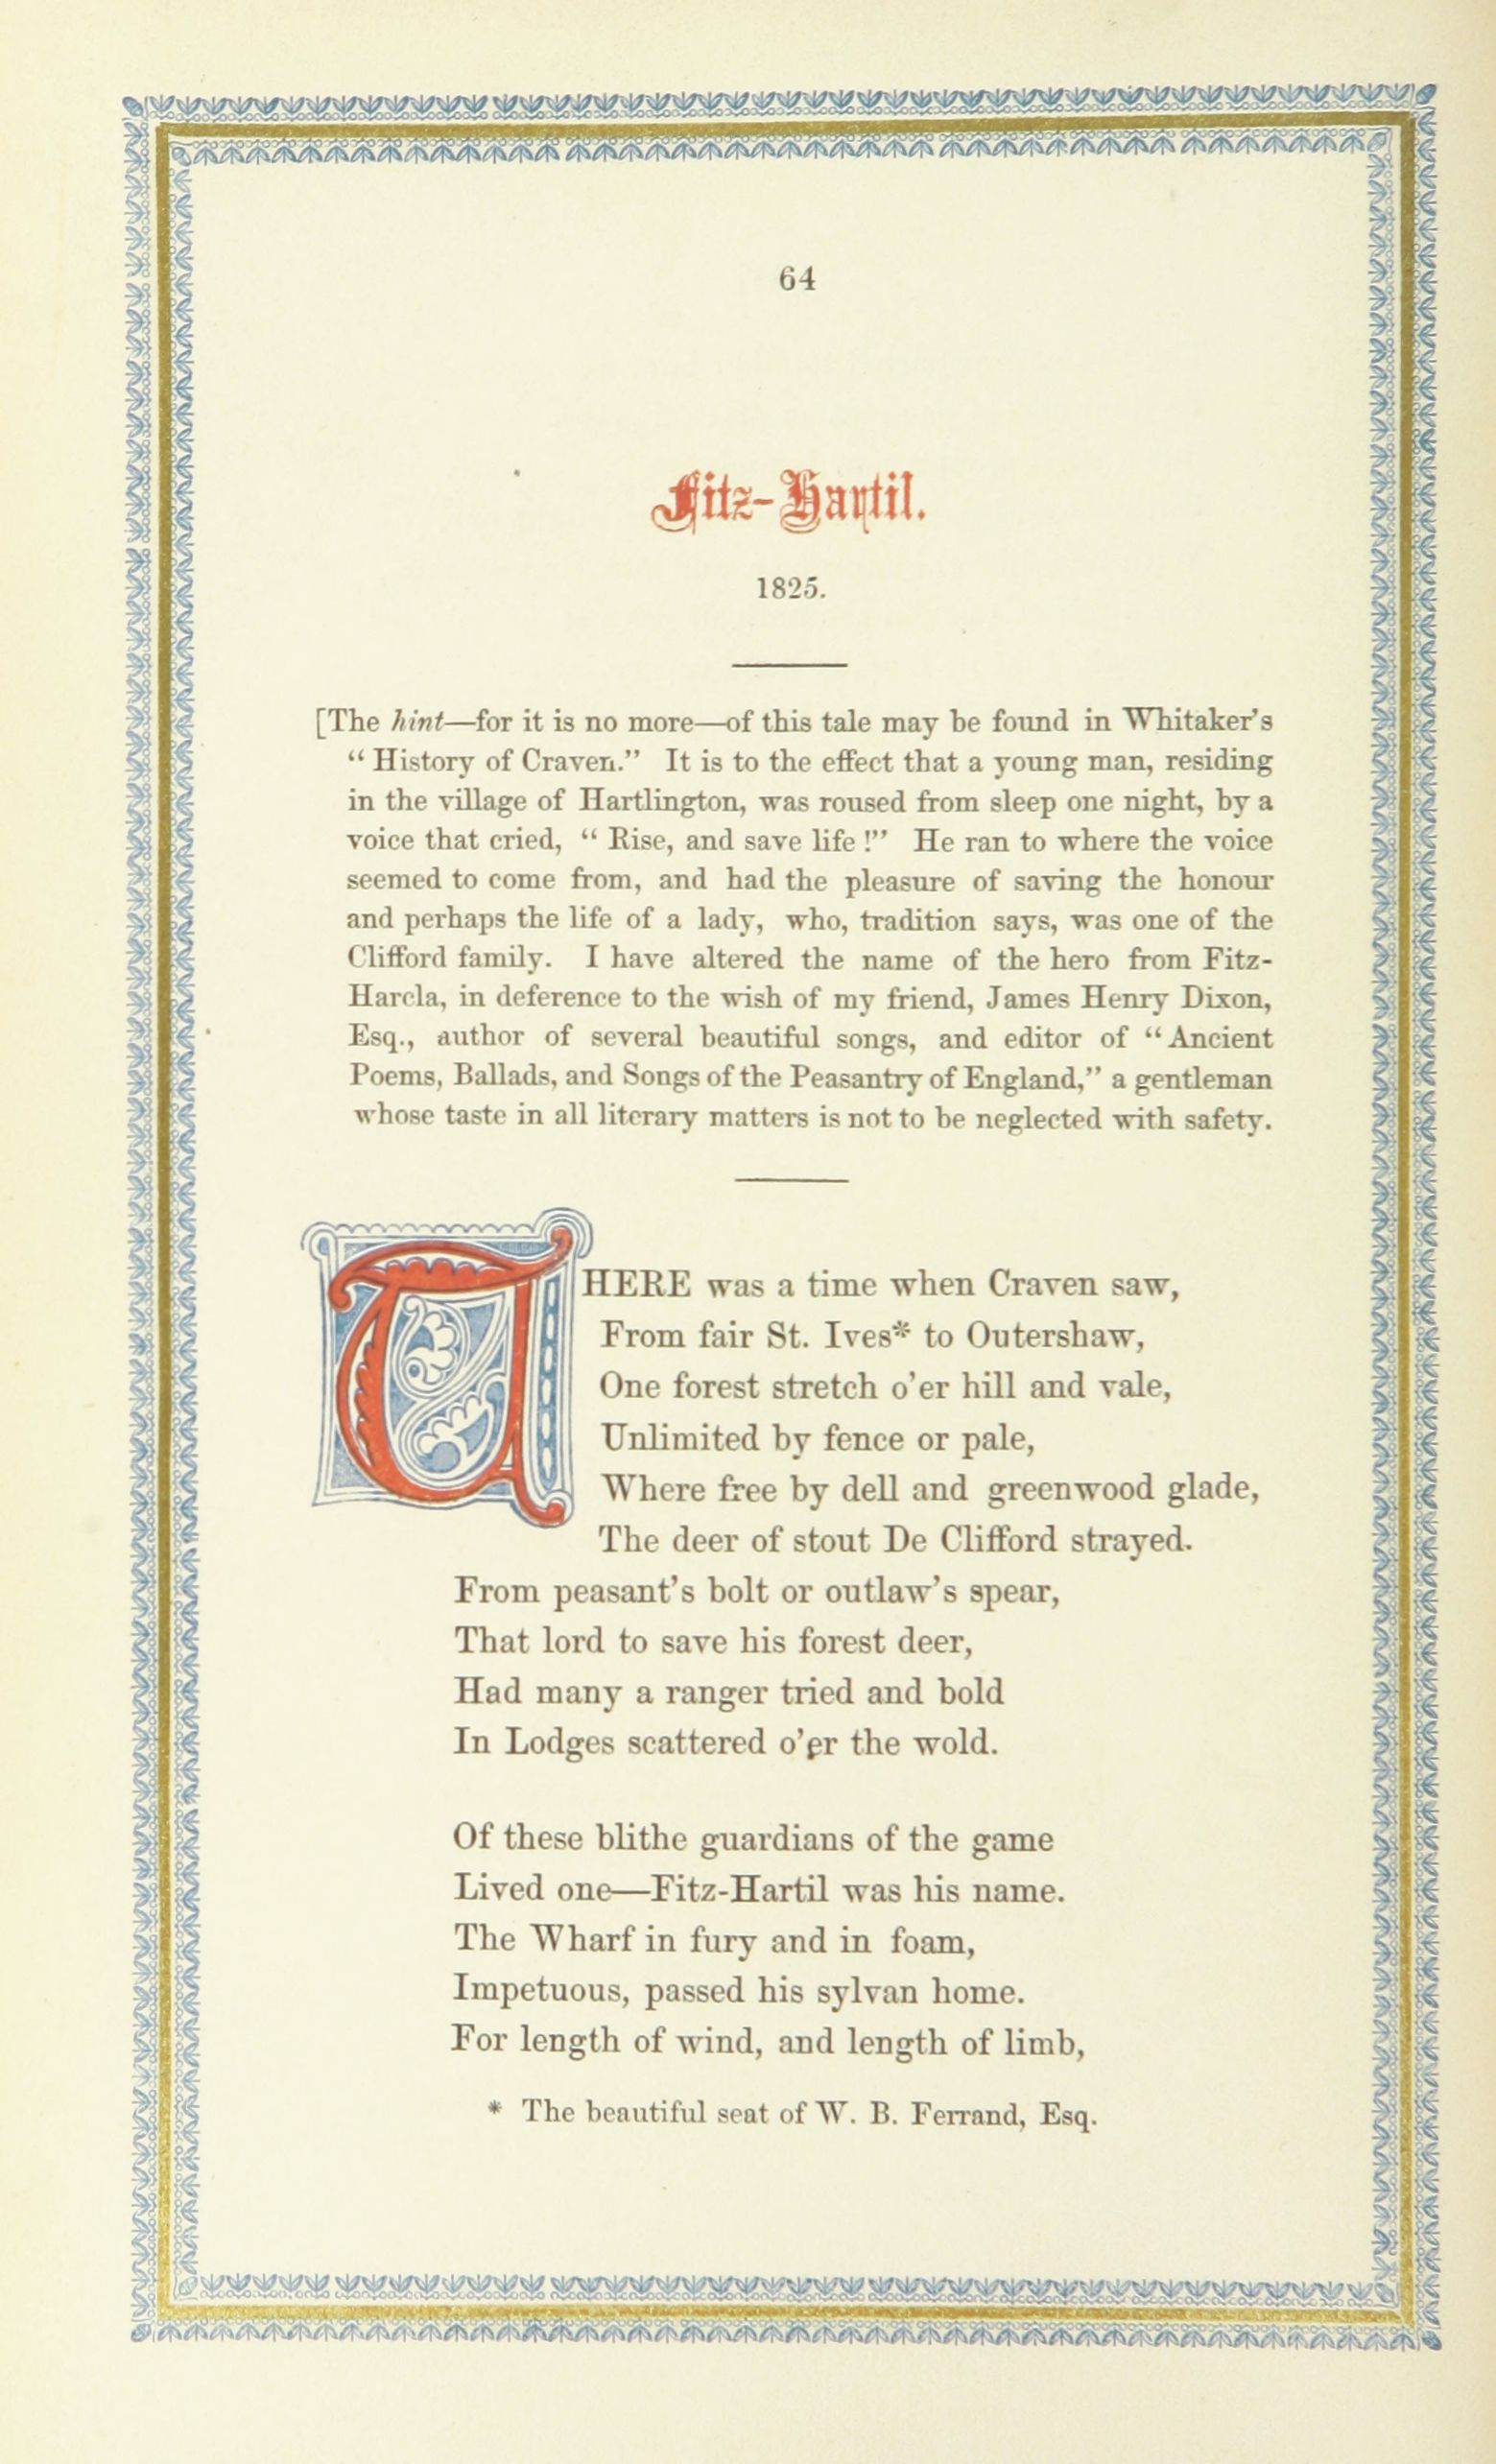 64
Fitz-Hartil.
1825.
[The hint—for it is no more—of this tale may be found in Whitaker's
“ History of Craven.” It is to the effect that a young man, residing
in the village of Hartlington, was roused from sleep one night, by a
voice that cried, “ Rise, and save life !” He ran to where the voice
seemed to come from, and had the pleasure of saving the honour
and perhaps the life of a lady, who, tradition says, was one of the
Clifford family. I have altered the name of the hero from Fitz-
Harcla, in deference to the wish of my friend, James Henry Dixon,
Esq., author of several beautiful songs, and editor of “ Ancient
Poems, Ballads, and Songs of the Peasantry of England,” a gentleman
whose taste in all literary matters is not to be neglected with safety.
THERE was a time when Craven saw,
From fair St. Ives* to Outershaw,
One forest stretch o'er hill and vale,
Unlimited by fence or pale,
Where free by dell and greenwood glade,
The deer of stout De Clifford strayed.
From peasant's bolt or outlaw's spear,
That lord to save his forest deer,
Had many a ranger tried and bold
In Lodges scattered o'er the wold.
Of these blithe guardians of the game
Lived one—Fitz-Hartil was his name.
The Wharf in fury and in foam,
Impetuous, passed his sylvan home.
For length of wind, and length of limb,
* The beautiful seat of W. B. Ferrand, Esq.